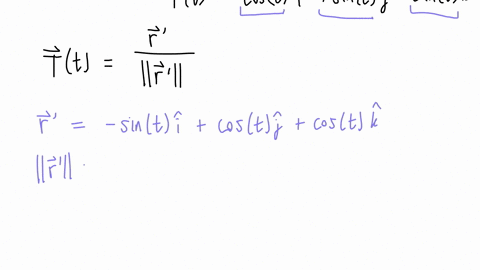 T⃗(t) = r⃗' / ||r⃗'||
r⃗' = -sin(t) î + cos(t) ĵ + cos(t) k̂
||r⃗'||